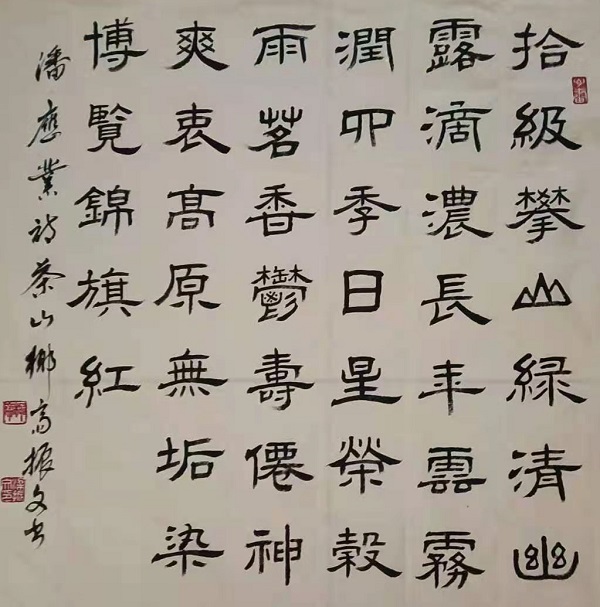 拾級攀山緑清幽
露滴濃長年雲霧
潤四季日星榮穀
雨茗香鬱壽僊神
爽衷高原無垢染
博覽錦旗紅
潘應業詩茶山鄉高振文书